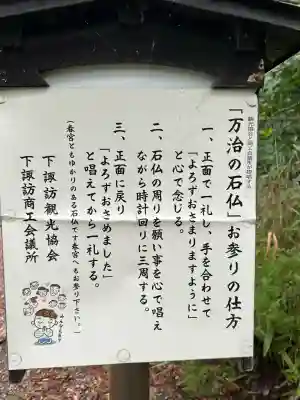 「万治の石仏」お参りの仕方
一、正面で一礼し、手を合わせて
「よろずおさまりますように」
と心で念じる。
二、石仏の周りを願い事を心で唱え
ながら時計回りに三周する。
三、正面に戻り
「よろずおさめました」
と唱えてから一礼する。
(春宮ともゆかりのある石仏です春宮へもお参り下さい。)
下諏訪観光協会
下諏訪商工会議所